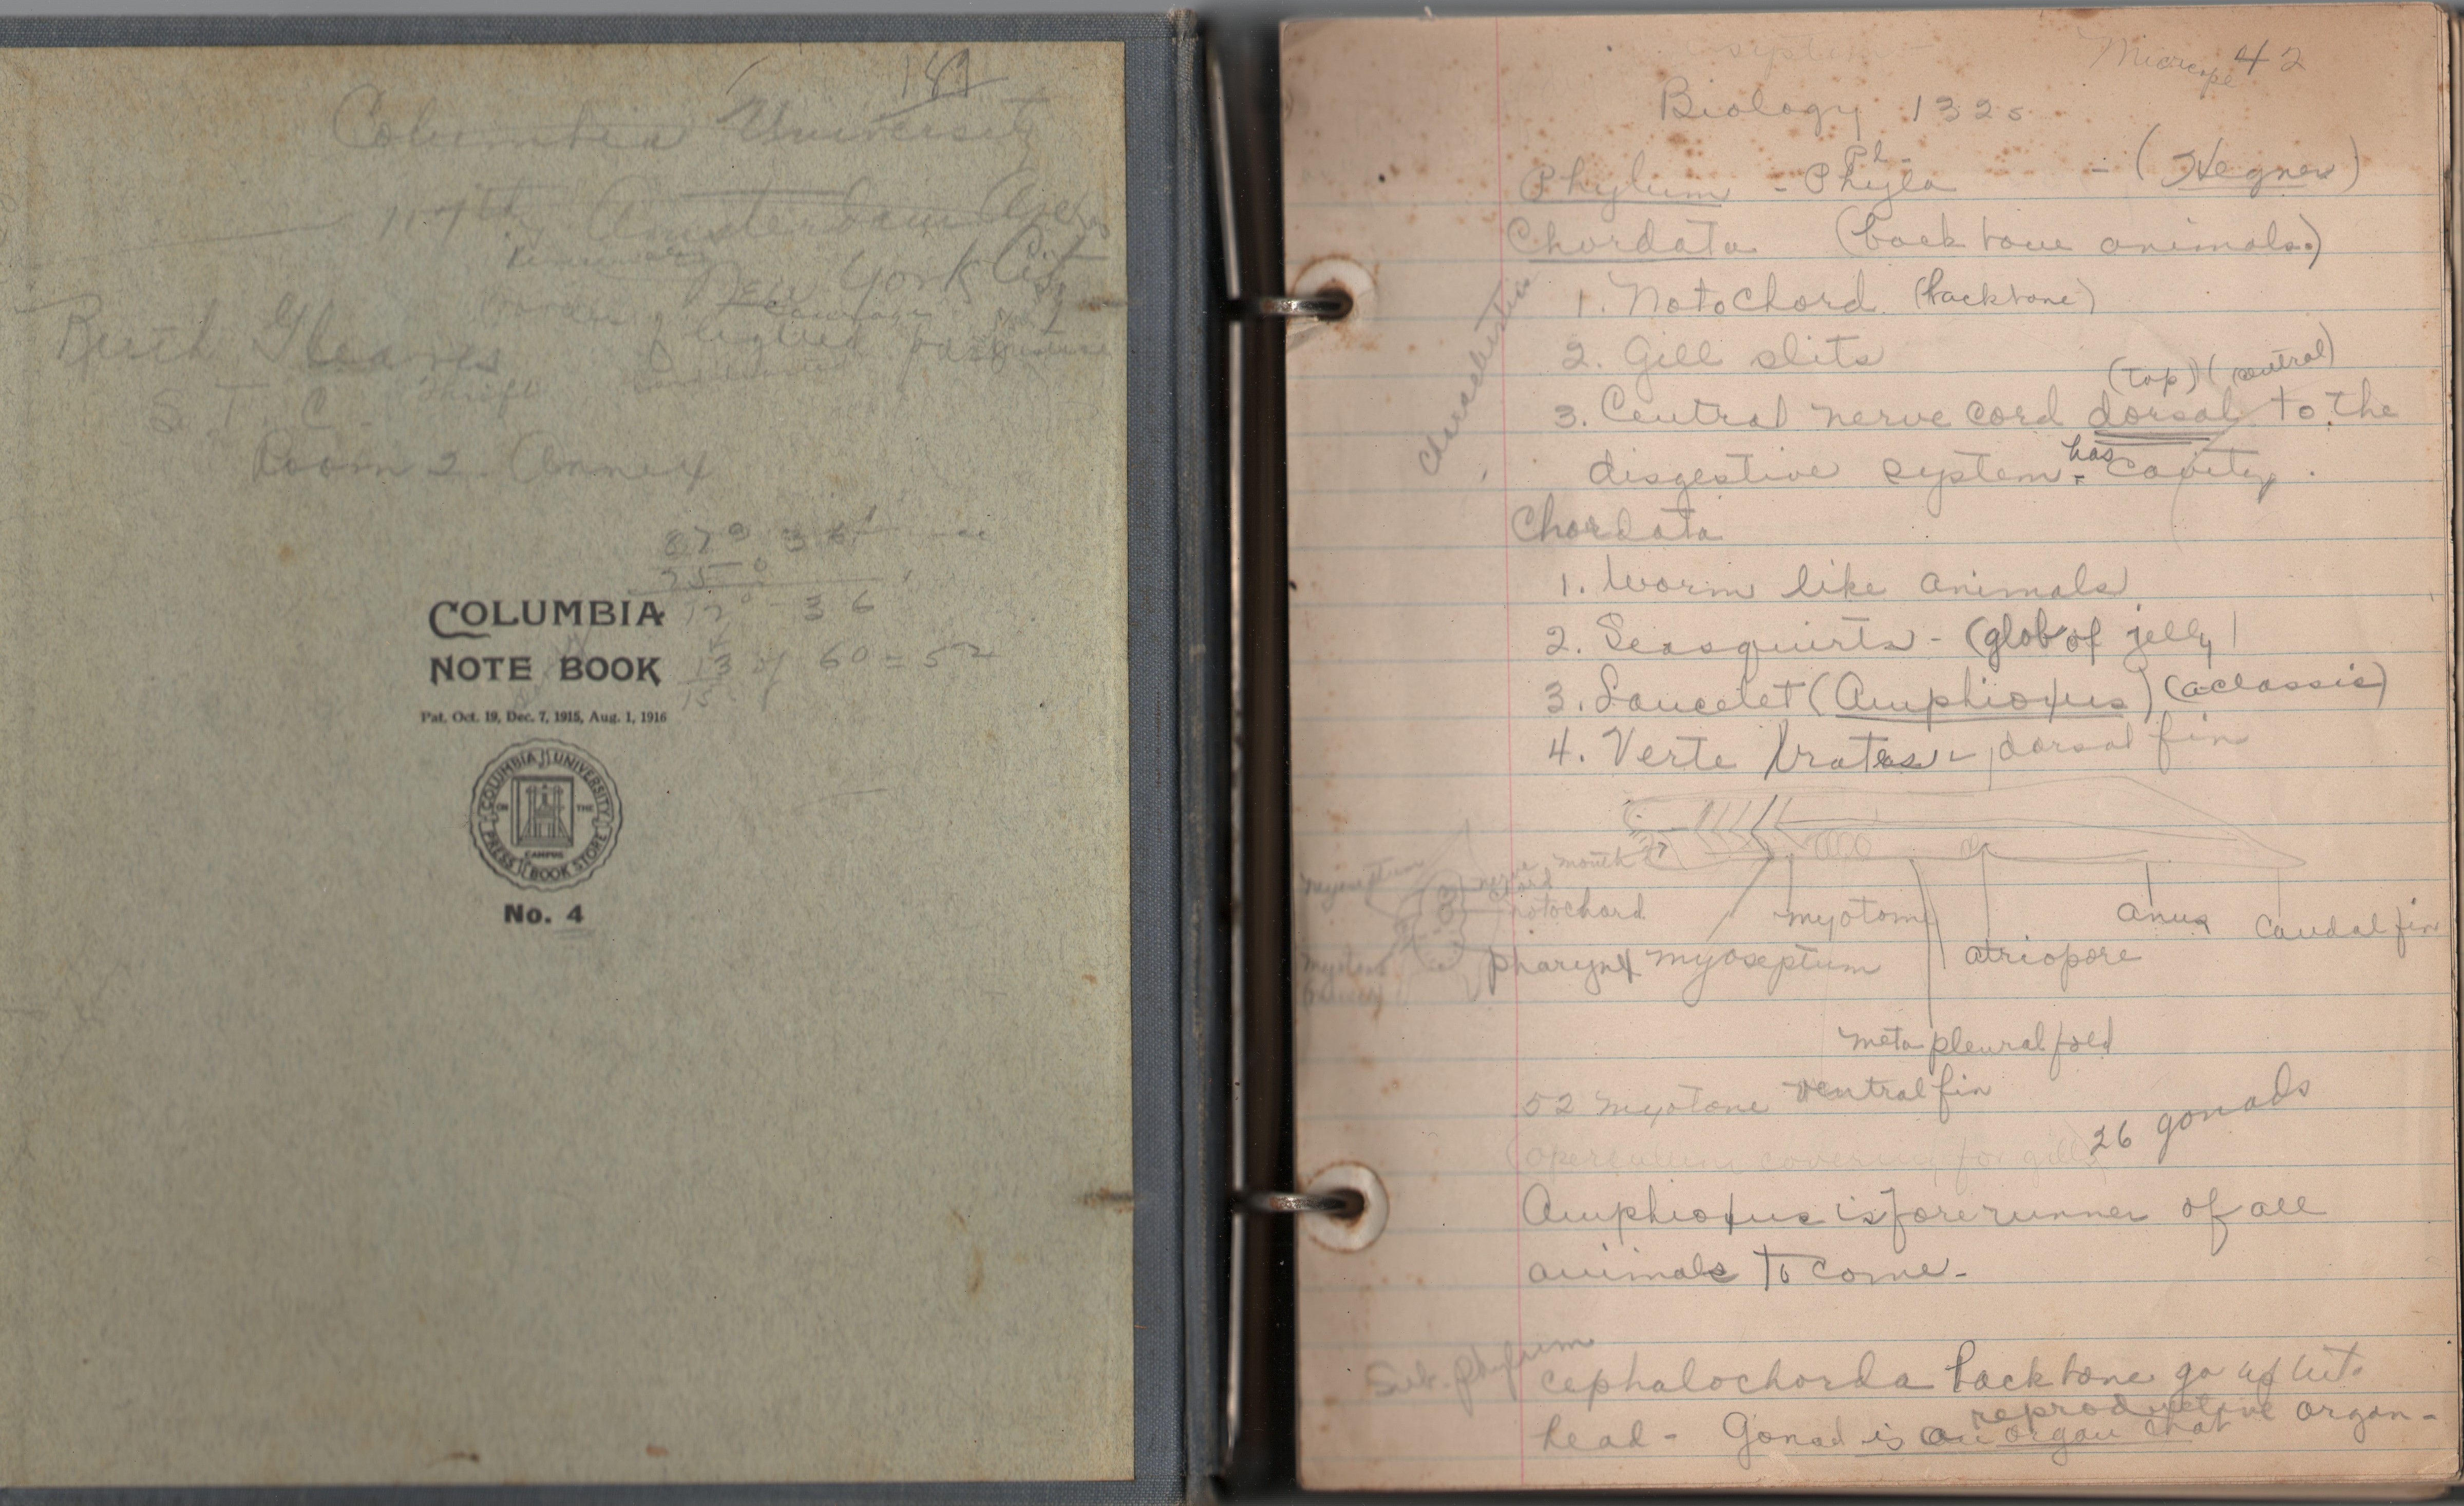 181
Columbia University
117th Amsterdam Ave
New York City
Ruth Gleaves
S. T. C. Thrift
Room 2 Annex
87° 36'
75°
12° - 36
13 of 60 = 52
COLUMBIA
NOTE BOOK
Pat. Oct. 19, Dec. 7, 1915, Aug. 1, 1916
COLUMBIA UNIVERSITY
PRESS BOOK STORE
ON THE
CAMPUS
No. 4
Microscope 42
Biology 132s
Pl-
Phylum - Phyla - (Hegner)
Chordata (back bone animals.)
characteristics
1. Notochord (backbone)
2. Gill slits
(top) (central)
3. Central nerve cord dorsal to the
disgestive system. has cavity.
Chordata
1. Worm like animals
2. Seasquirts - (glob of jelly)
3. Lancelet (Amphioxus) (a classis)
4. Verte brates - dorsal fin
myoseptum nerve chord mouth
notochord myotome anus caudal fin
myotome pharynx myoseptum atriopore
metapleural fold
52 myotone ventral fin
26 gonads
operculum covering for gills
Amphioxus is forerunner of all
animals to come -
Sub. phylum
cephalochorda backbone go up into
reproductive organ -
head - Gonad is an organ that